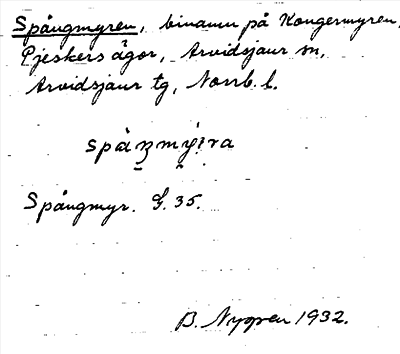 Spångmyren, binamn på Kongermyren,
Pjeskers ägor, Arvidsjaur sn,
Arvidsjaur tg, Norrb. l.
spåŋmy̜i̯ra
Spångmyr. G. 35.
B. Nygren 1932.